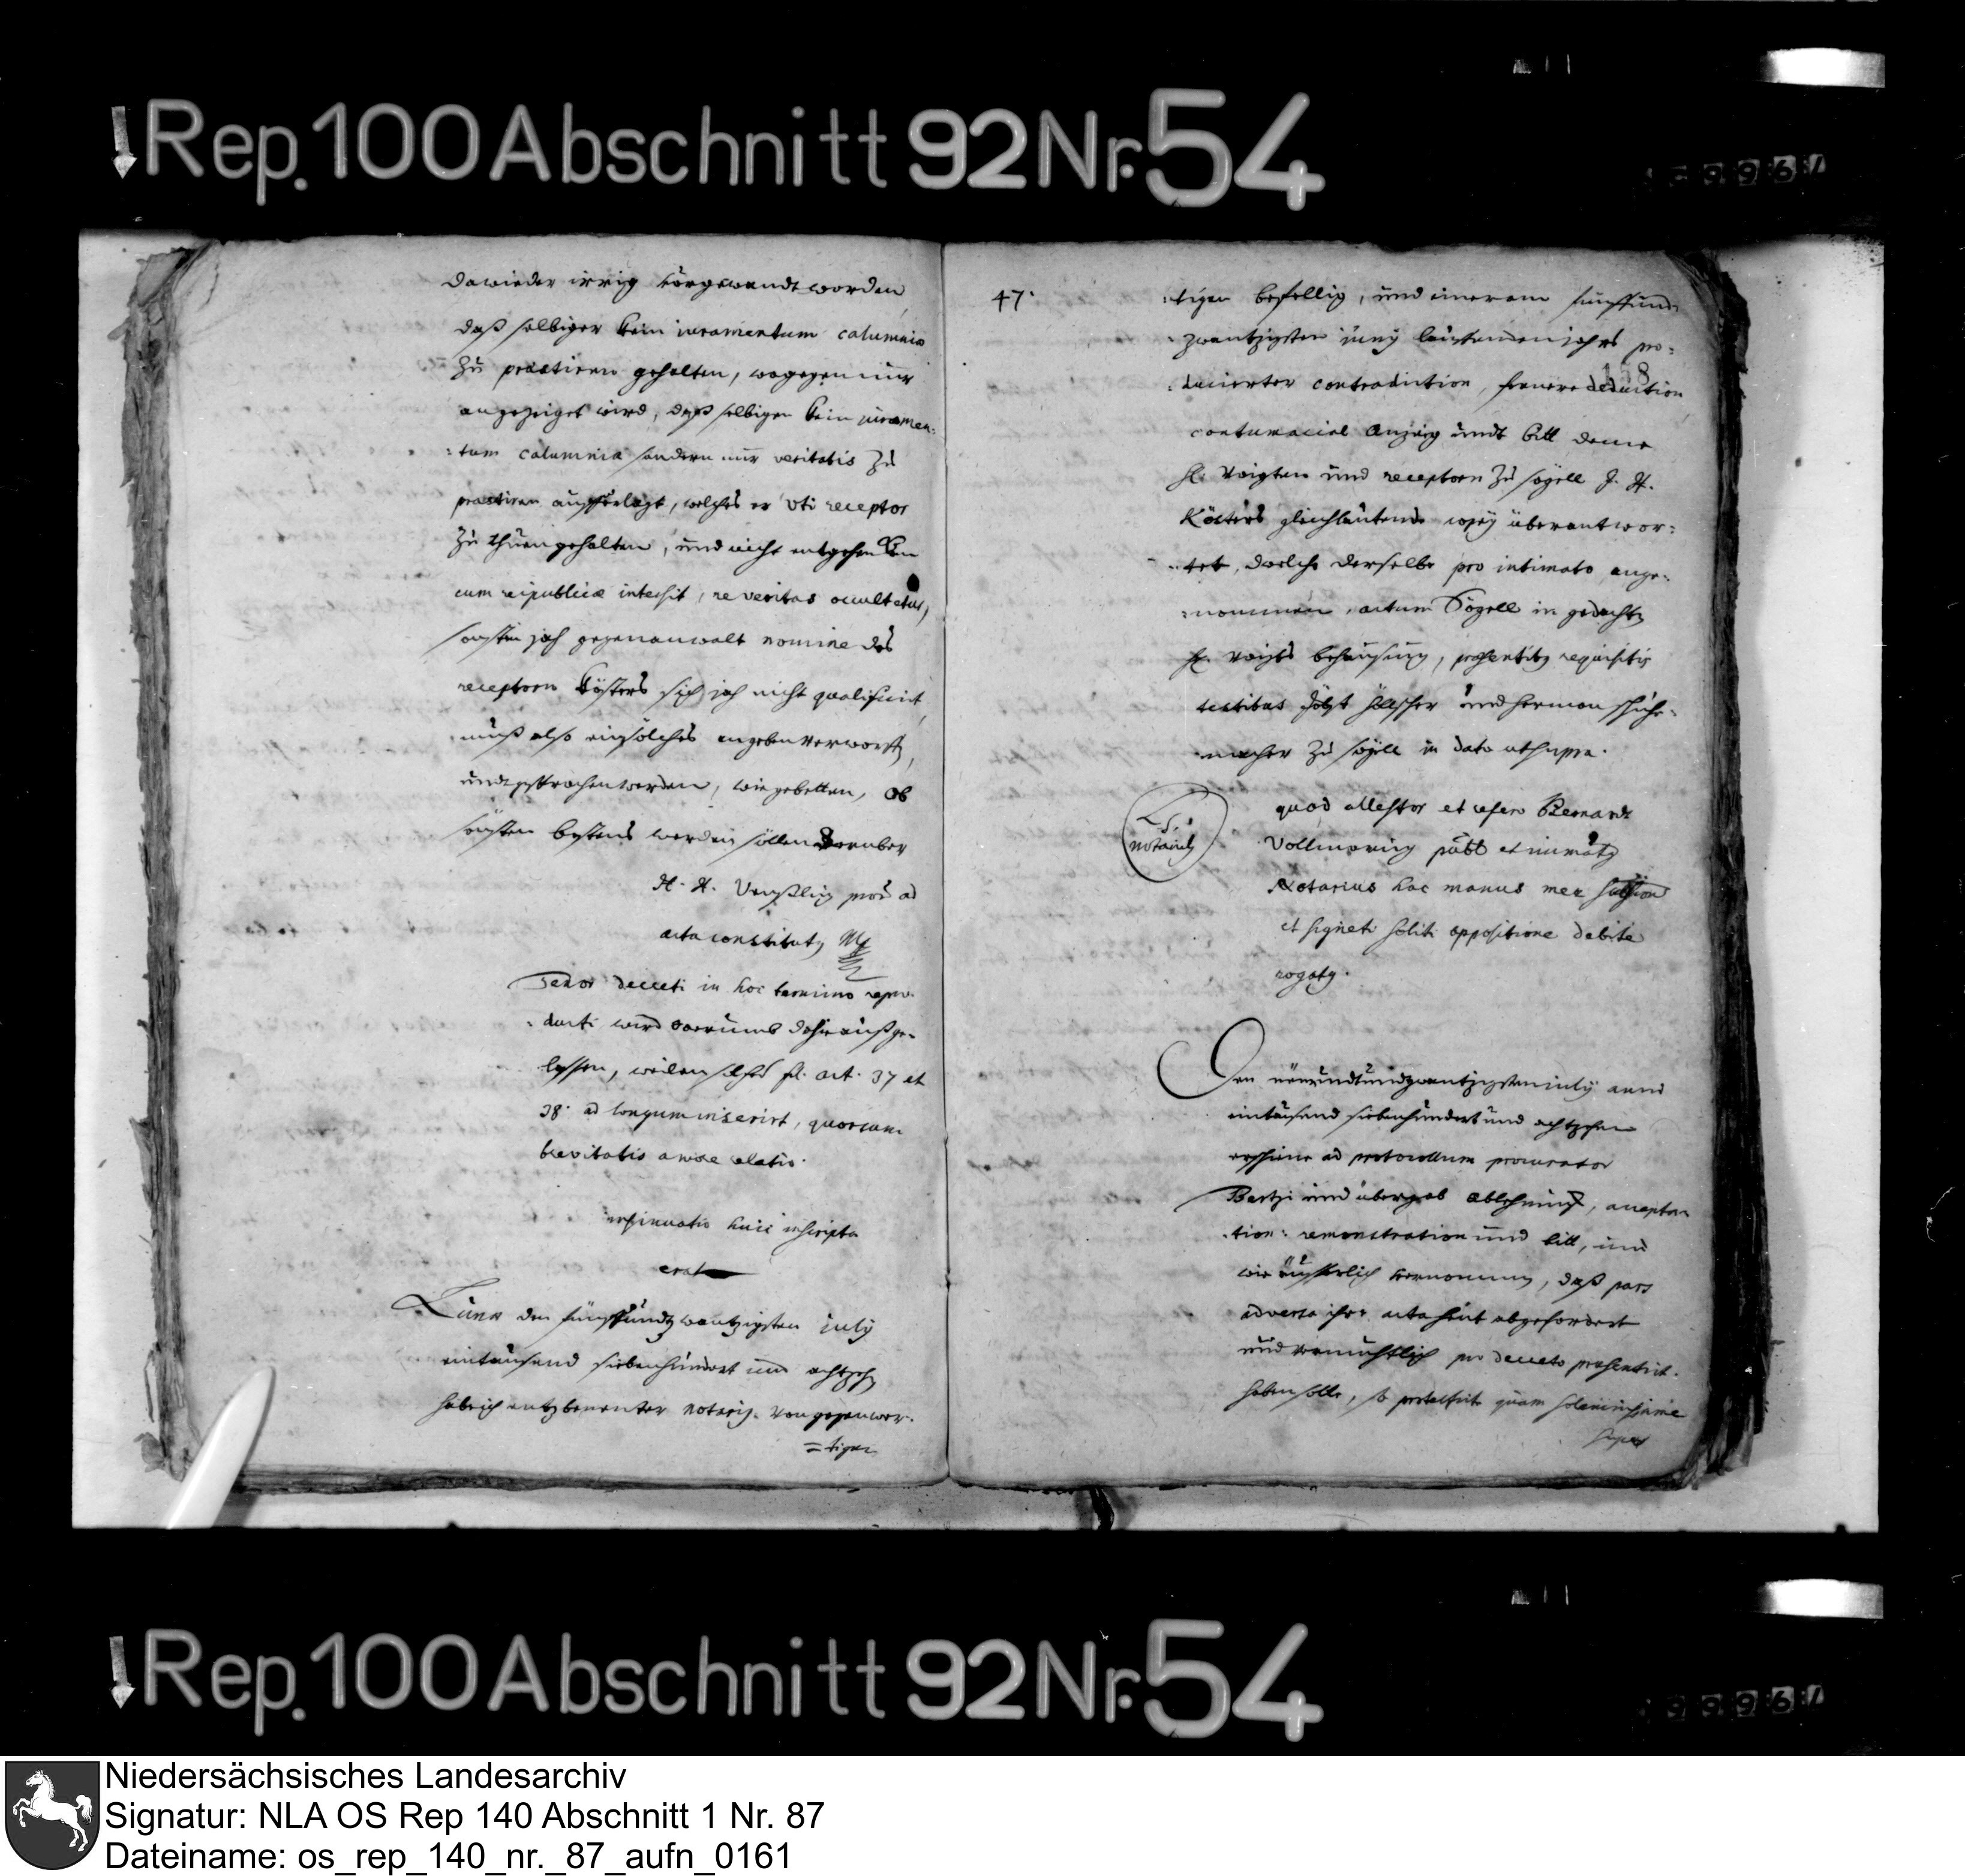 Rep. 100 Abschnitt 92 Nr. 54
dawieder irrig vorgewandt worden
daß selbiger kein iuramentum calumniæ
zu præstiren gehalten, wogegen nur
angezeiget wird, daß selbigen kein juramen:
:tum calumniæ sondern nur veritatis zu
præstiren aufferlegt, welches er uti receptor
zu thuen gehalten, und nicht entgehen kan
cum reipublicæ intersit, ne veritas occultetur,
gegenanwalt nomine des
receptorn Kösters sich nicht qualificirt,
muß also angeben verworffen,
und gesprochen werden, wie gebetten, ob
sonsten bestens werden sollen darüber
H. H. ad
acta constitutus
Tenor decreti in hoc termino repro:
:ducti wird darumb dahier außge:
lassen, weilen selbes fol. act. 37 et
38. ad longum inserirt, quorsum
brevitatis amore relatio.
insinuatio huic inscripta
erat
Lunæ den fünffundtzwantzigsten july
eintausend siebenhundert und achtzehn
hab ich entzbenenter notarius von gegenwer:
=tigen
47.
:tigen befellig, und einer am fünffund
zwantzigsten juny lauffenden jahrs pro:
158
:ducierter contradiction, fernere deduction
contumacial anzeig undt bitt deme
H. Voigten und receptorn zu Sögell J. H.
Kösters gleichlautende copey überantwor:
:tet, welche derselbe pro intimato ange:
:nommen, actum Sögell in gedachten
H. Voigts behausung, præsentibus requisitis
testibus und Herman Schuhe:
:macher zu Sögell in dato ut supra.
L. S.
notariatus
quod attestor et refero Bernardt
Vollmaring publ et immatus
Notarius hac manus meæ
et signeti soliti appositione debite
rogatus.
Den neunundtundzwantzigsten july anno
eintausend siebenhundert und achtzehen
erschiene ad protocollum procurator
Bertzi und übergab ablehnung, accepta
:tion: remonstration und bitt, und
wie äusserlich vernommen, daß pars
adversa ihre acta heut abgefordert
und vermuthlich pro decreto præsentirt
haben solle, so protestirt quam solennissime
super
Rep. 100 Abschnitt 92 Nr. 54
Niedersächsisches Landesarchiv
Signatur: NLA OS Rep 140 Abschnitt 1 Nr. 87
Dateiname: os_rep_140_nr._87_aufn_0161